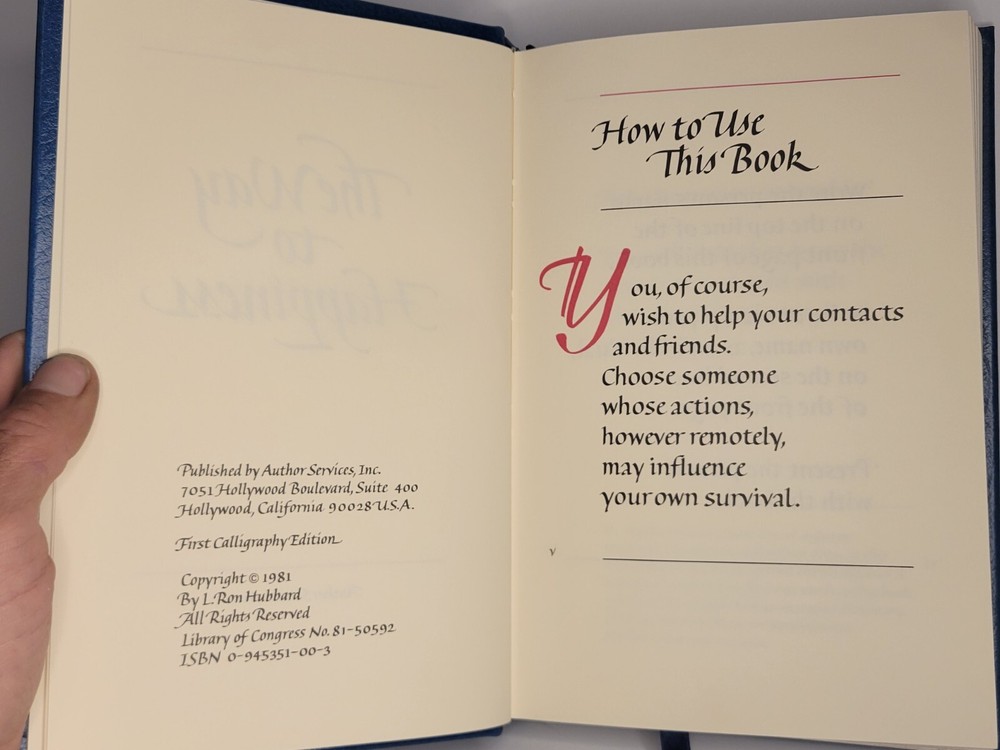 Published by Author Services, Inc.
7051 Hollywood Boulevard, Suite 400
Hollywood, California 90028 U.S.A.
First Calligraphy Edition
Copyright © 1981
By L. Ron Hubbard
All Rights Reserved
Library of Congress No. 81-50592
ISBN 0-945351-00-3
How to Use
This Book
You, of course,
wish to help your contacts
and friends.
Choose someone
whose actions,
however remotely,
may influence
your own survival.
v